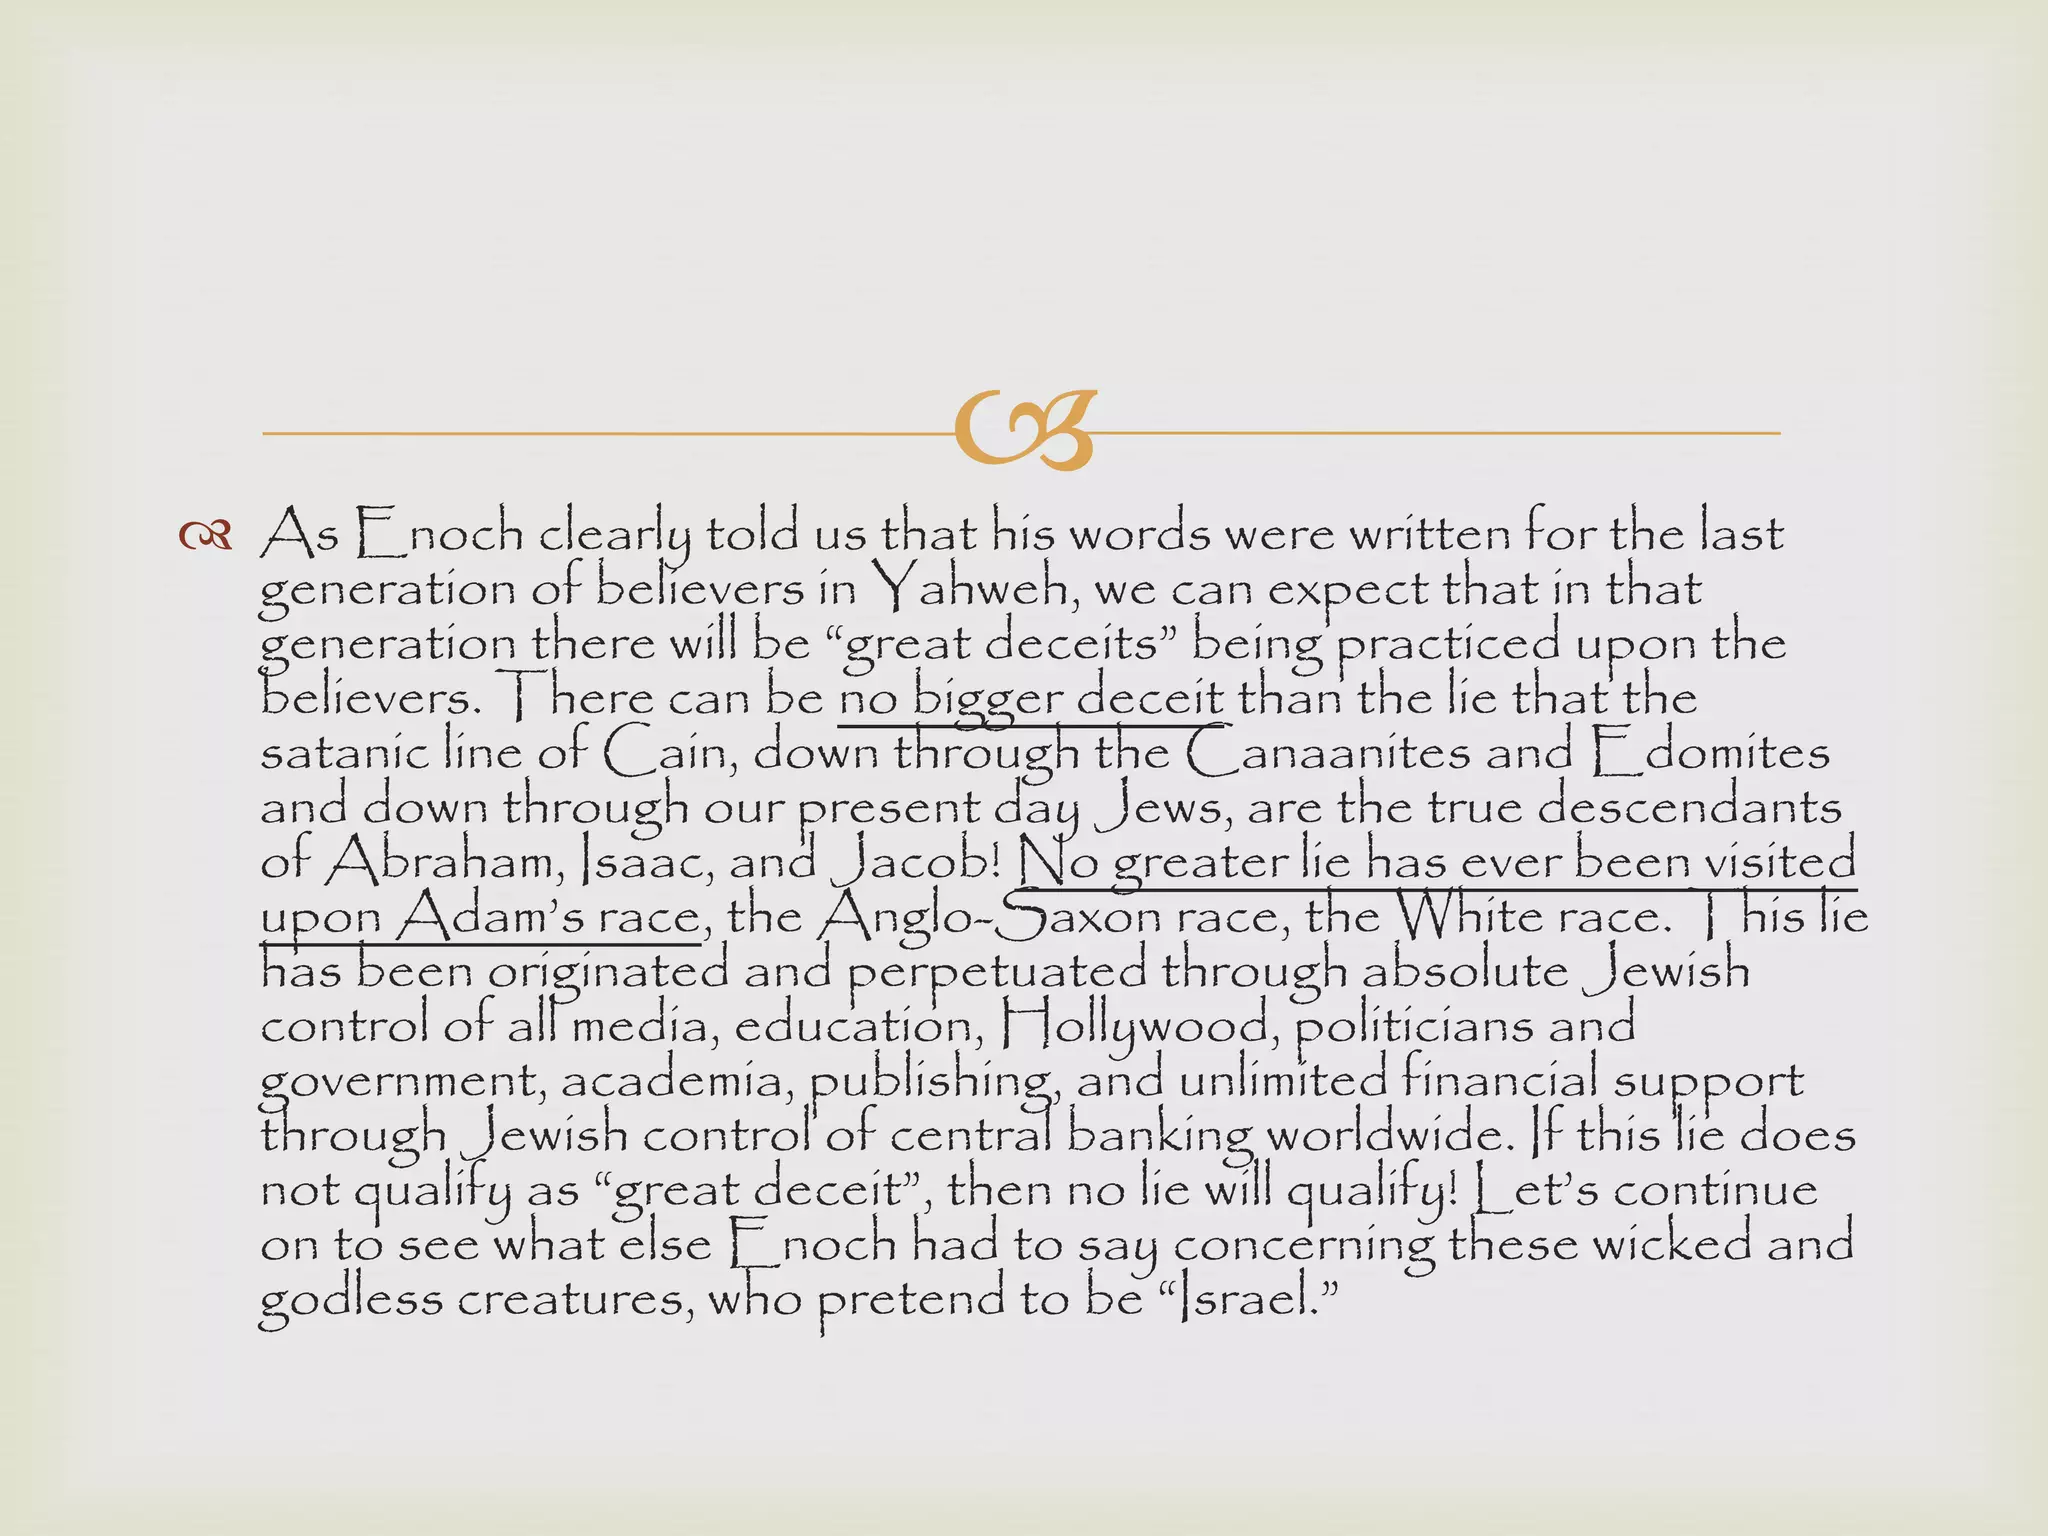 As Enoch clearly told us that his words were written for the last
generation of believers in Yahweh, we can expect that in that
generation there will be “great deceits” being practiced upon the
believers. There can be no bigger deceit than the lie that the
satanic line of Cain, down through the Canaanites and Edomites
and down through our present day Jews, are the true descendants
of Abraham, Isaac, and Jacob! No greater lie has ever been visited
upon Adam’s race, the Anglo-Saxon race, the White race. This lie
has been originated and perpetuated through absolute Jewish
control of all media, education, Hollywood, politicians and
government, academia, publishing, and unlimited financial support
through Jewish control of central banking worldwide. If this lie does
not qualify as “great deceit”, then no lie will qualify! Let’s continue
on to see what else Enoch had to say concerning these wicked and
godless creatures, who pretend to be “Israel.”